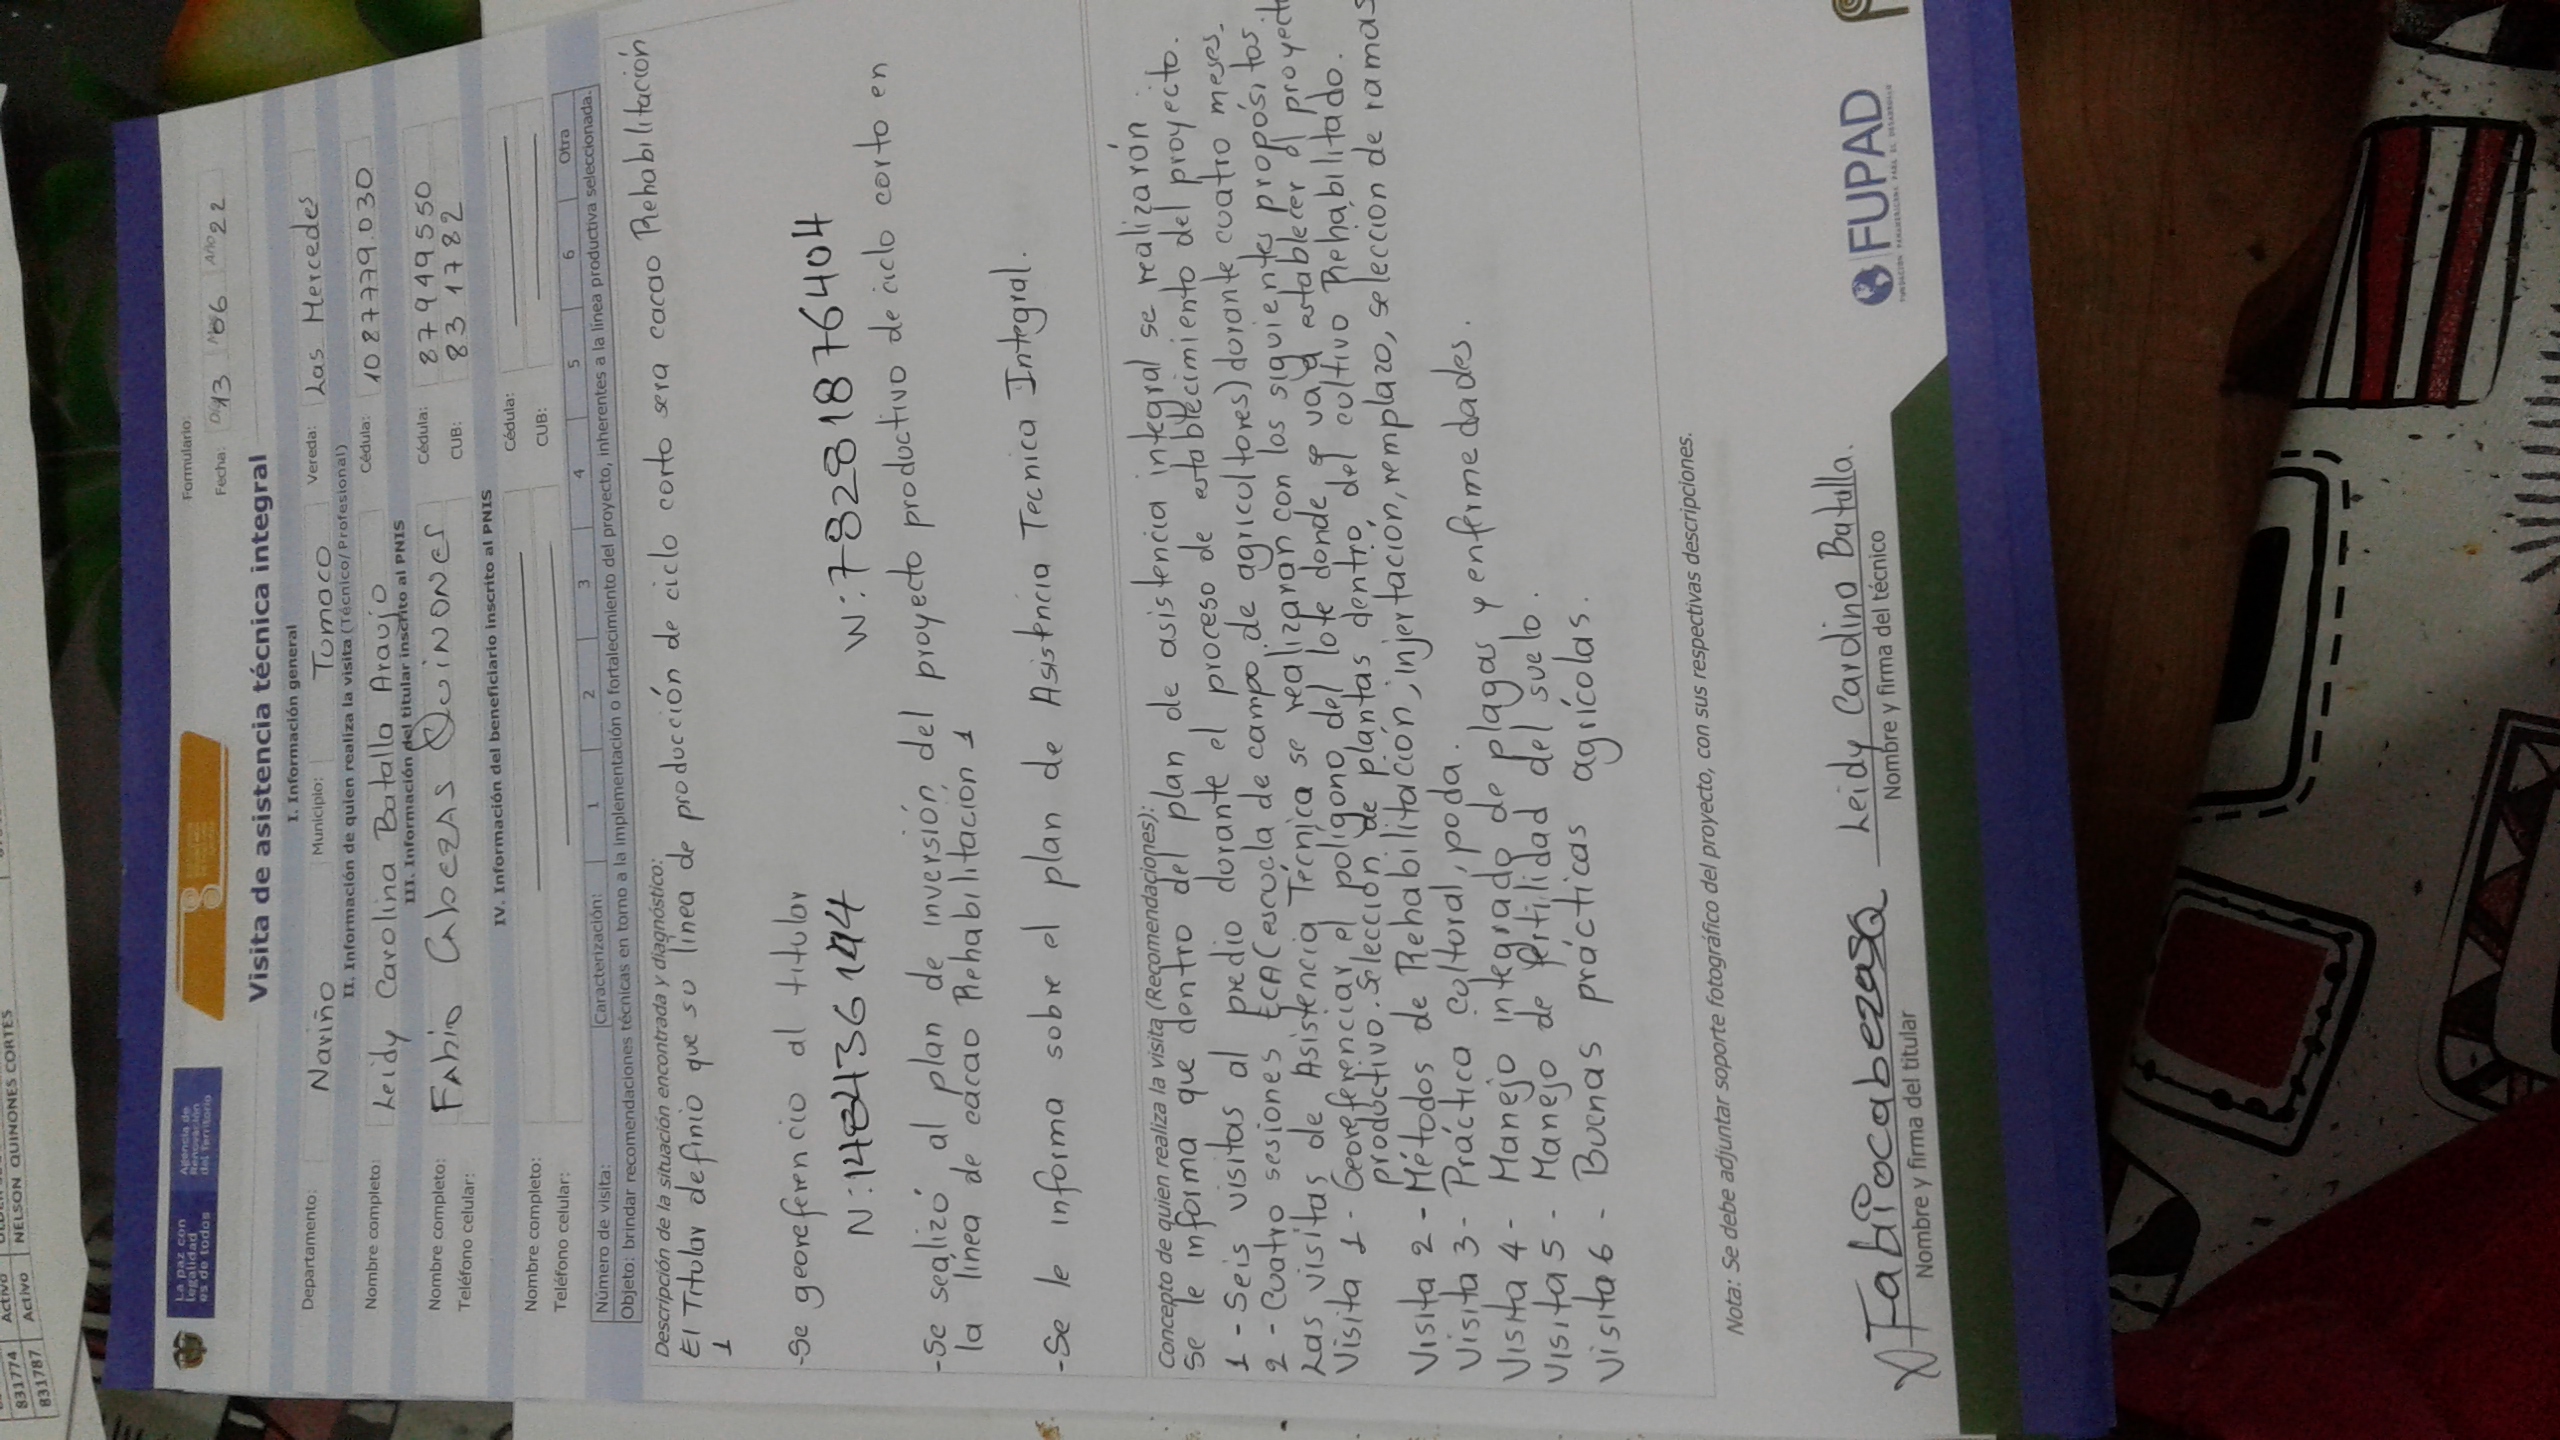 831774 Activo
831787 Activo NELSON QUIÑONES CORTES
La paz con legalidad es de todos
Agencia de Renovación del Territorio
Formulario:
Fecha: Día 13 Mes 06 Año 22
Visita de asistencia técnica integral
I. Información general
Departamento: Nariño Municipio: Tumaco Vereda: Las Mercedes
II. Información de quien realiza la visita (Técnico/Profesional)
Nombre completo: Leidy Carolina Batalla Araujo Cédula: 1087779.030
III. Información del titular inscrito al PNIS
Nombre completo: FAbio CAbezAS QuiNONes Cédula: 87949550
Teléfono celular: CUB: 831782
IV. Información del beneficiario inscrito al PNIS
Nombre completo: Cédula:
Teléfono celular: CUB:
Número de visita: Caracterización: 1 2 3 4 5 6 Otra
Objeto: brindar recomendaciones técnicas en torno a la implementación o fortalecimiento del proyecto, inherentes a la línea productiva seleccionada.
Descripción de la situación encontrada y diagnóstico:
El Titular definio que su linea de producción de ciclo corto sera cacao Rehabilitación
1
-Se georeferencio al titular
W:78281876404
-Se sealizó al plan de inversión del proyecto productivo de ciclo corto en
la línea de cacao Rehabilitación 1
-Se le informa sobre el plan de Asistencia Tecnica Integral.
Concepto de quien realiza la visita (Recomendaciones):
Se le informa que dentro del plan de asistencia integral se realizarón
1 - Seis visitas al predio durante el proceso de establecimiento del proyecto.
2 - Cuatro sesiones ECA (escuela de campo de agricultores) durante cuatro meses.
Las visitas de Asistencia Técnica se realizaran con los siguientes propósitos
Visita 1 - Georeferenciar el polígono del lote donde se va a establecer el proyecto
productivo. Selección de plantas dentro del cultivo Rehabilitado.
Visita 2 - Métodos de Rehabilitación, injertación, remplazo, seleccion de ramas
Visita 3 - Práctica cultural, poda.
Visita 4 - Manejo integrado de plagas y enfermedades.
Visita 5 - Manejo de fertilidad del suelo.
Visita 6 - Buenas prácticas agrícolas.
Nota: Se debe adjuntar soporte fotográfico del proyecto, con sus respectivas descripciones.
X Fabiocabezasq Leidy Carolina Batalla.
Nombre y firma del titular Nombre y firma del técnico
FUPAD
FUNDACIÓN PANAMERICANA PARA EL DESARROLLO